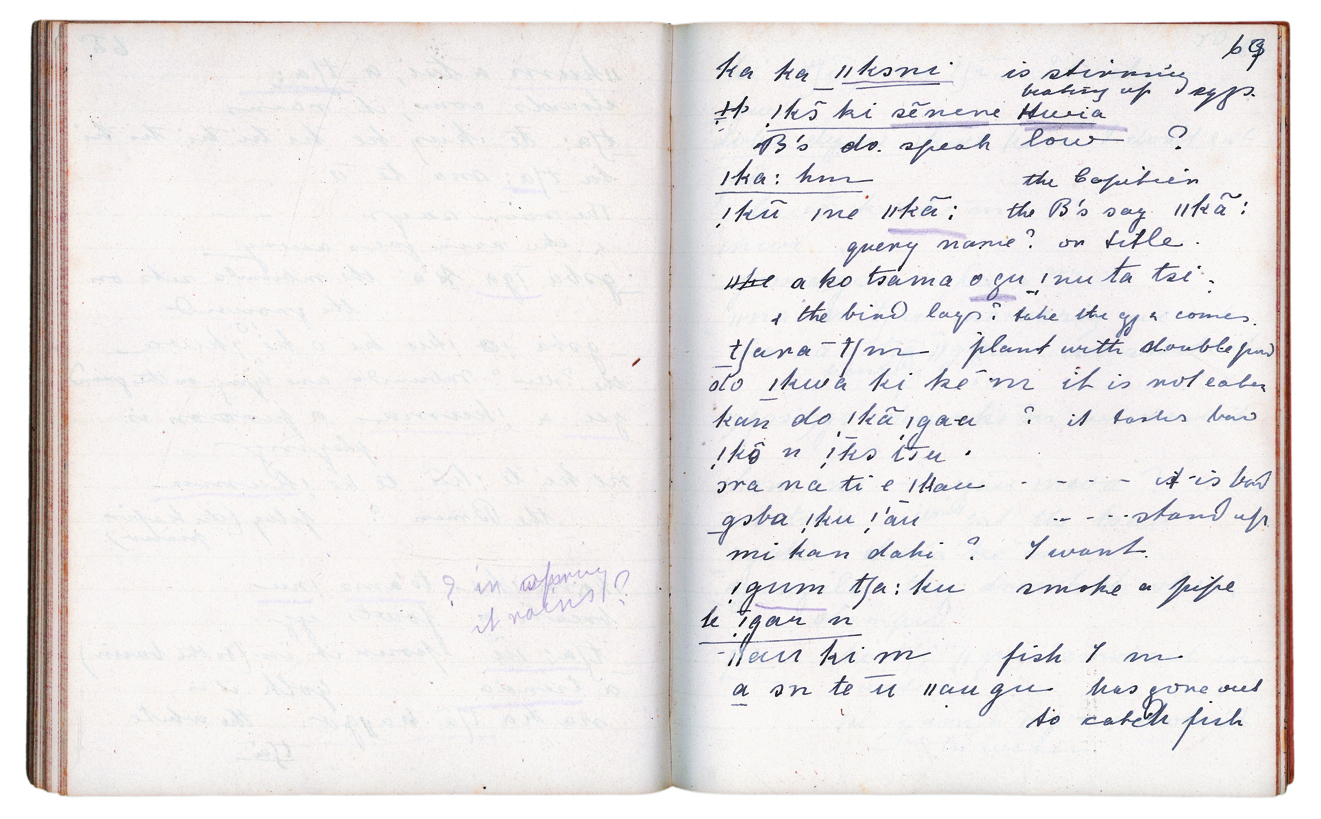 ? in spring
it rains?
69
ka ka ǁksni is stirring
beating up eggs.
ǃkõ ki sẽnene Huia
B's do. speak low ?
ǀka: hm the Capitein
ǃkũ ǀne ǁkã: the B's say ǁkã:
query name? or title.
a ko tsama ogu ǀnu ta tsi
& the bird lays? take the & comes.
tʃara-tʃm plant with double pod
do ǀkwa ki ke m it is not eaten
kan do ǀkã ǀgaa ? it tastes bad
ǃkõ n ǃks
sra na ti e ǀkau - - - - it is bad
gsba ǃku ǃ'ãu - - - stand up
mi kan daki ? I want
ǃgum tʃa: ku smoke a pipe
ǃgau n
ǁau ki m fish I m
a sn te ũ ǁau gu has gone out
to catch fish